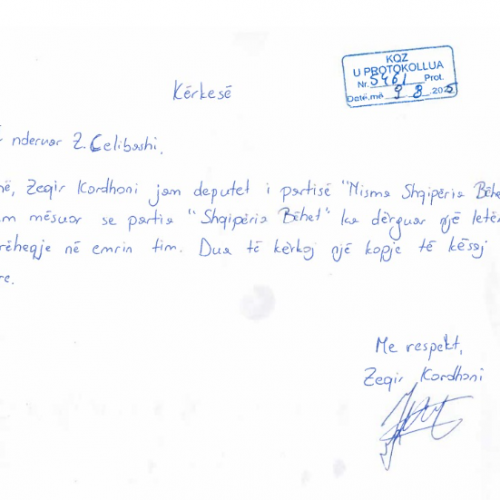 KQZ
U PROTOKOLLUA
Nr. 5461 Prot.
Datë.më 9 8 2025
Kërkesë
nderuar Z. Celibashi,
Zeqir Kordhoni jam deputet i partisë "Nisma Shqipëria Bëhe
mësuar se partia "Shqipëria Bëhet" ka dërguar një letër
në emrin tim. Dua të kërkoj një kopje të kësaj
Me respekt,
Zeqir Kordhoni